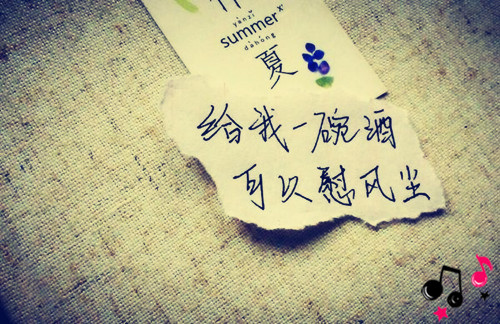 yàn zǐ
summer
dà hóng
夏
给我一碗酒
可以慰风尘